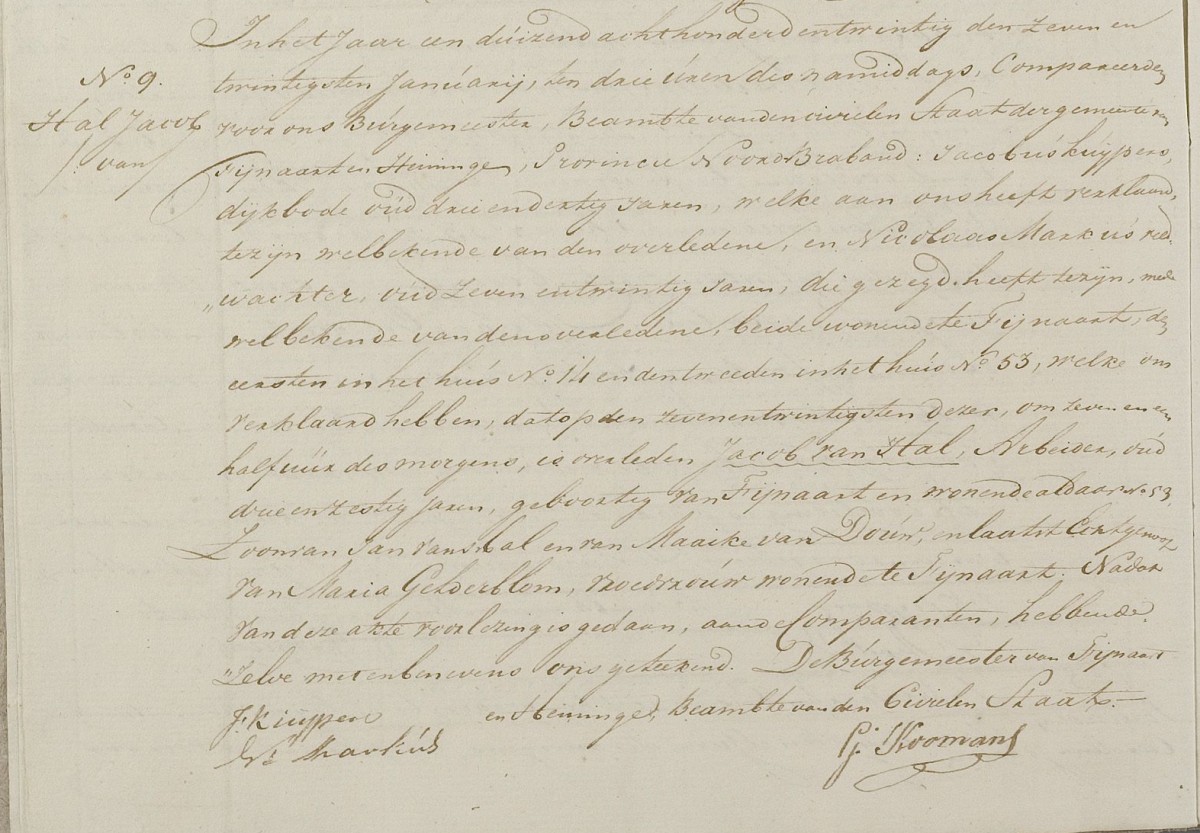 In het Jaar een duizend achthonderd en twintig den zeven en
No 9.
twintigsten Januarij, ten drie uren des namiddags, Compareerden
Hal Jacob
voor ons Burgemeester, Beambte van den civielen Staat der gemeente van
/: van/
Fijnaart en Heininge, Provincie Noord Braband: Jacobus Kuijpers,
dijkbode oud drie en dertig Jaren, welke aan ons heeft verklaard,
te zijn welbekende van den overledene, en Nicolaas Markus veld-
„wachter, oud zeven en twintig Jaren, die gezegd heeft te zijn, mede
welbekende van den overledene, beide wonende te Fijnaart, den
eersten in het huis No 14 en den tweeden in het huis No 53, welke ons
verklaard hebben, dat op den zevenentwintigsten dezer, om zeven en een
half uur des morgens, is overleden Jacob van Hal, Arbeider, oud
drie en zestig Jaren, geboortig van Fijnaart en wonende aldaar No 53,
Zoon van Jan van Hal en van Maaike van Dour, en laatst Echtgenoot
van Maria Gelderblom, vroedvrouw wonende te Fijnaart. Nadat
van deze akte voorlezing is gedaan, aan de Comparanten, hebben de-
„zelve met en benevens ons geteekend. De Burgemeester van Fijnaart
en Heininge, Beambte van den Civielen Staat.—
J. Kuijpers
Ns Markus
G. Koomans